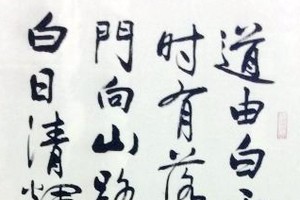 道由白
时有落
門向山路
白日清輝